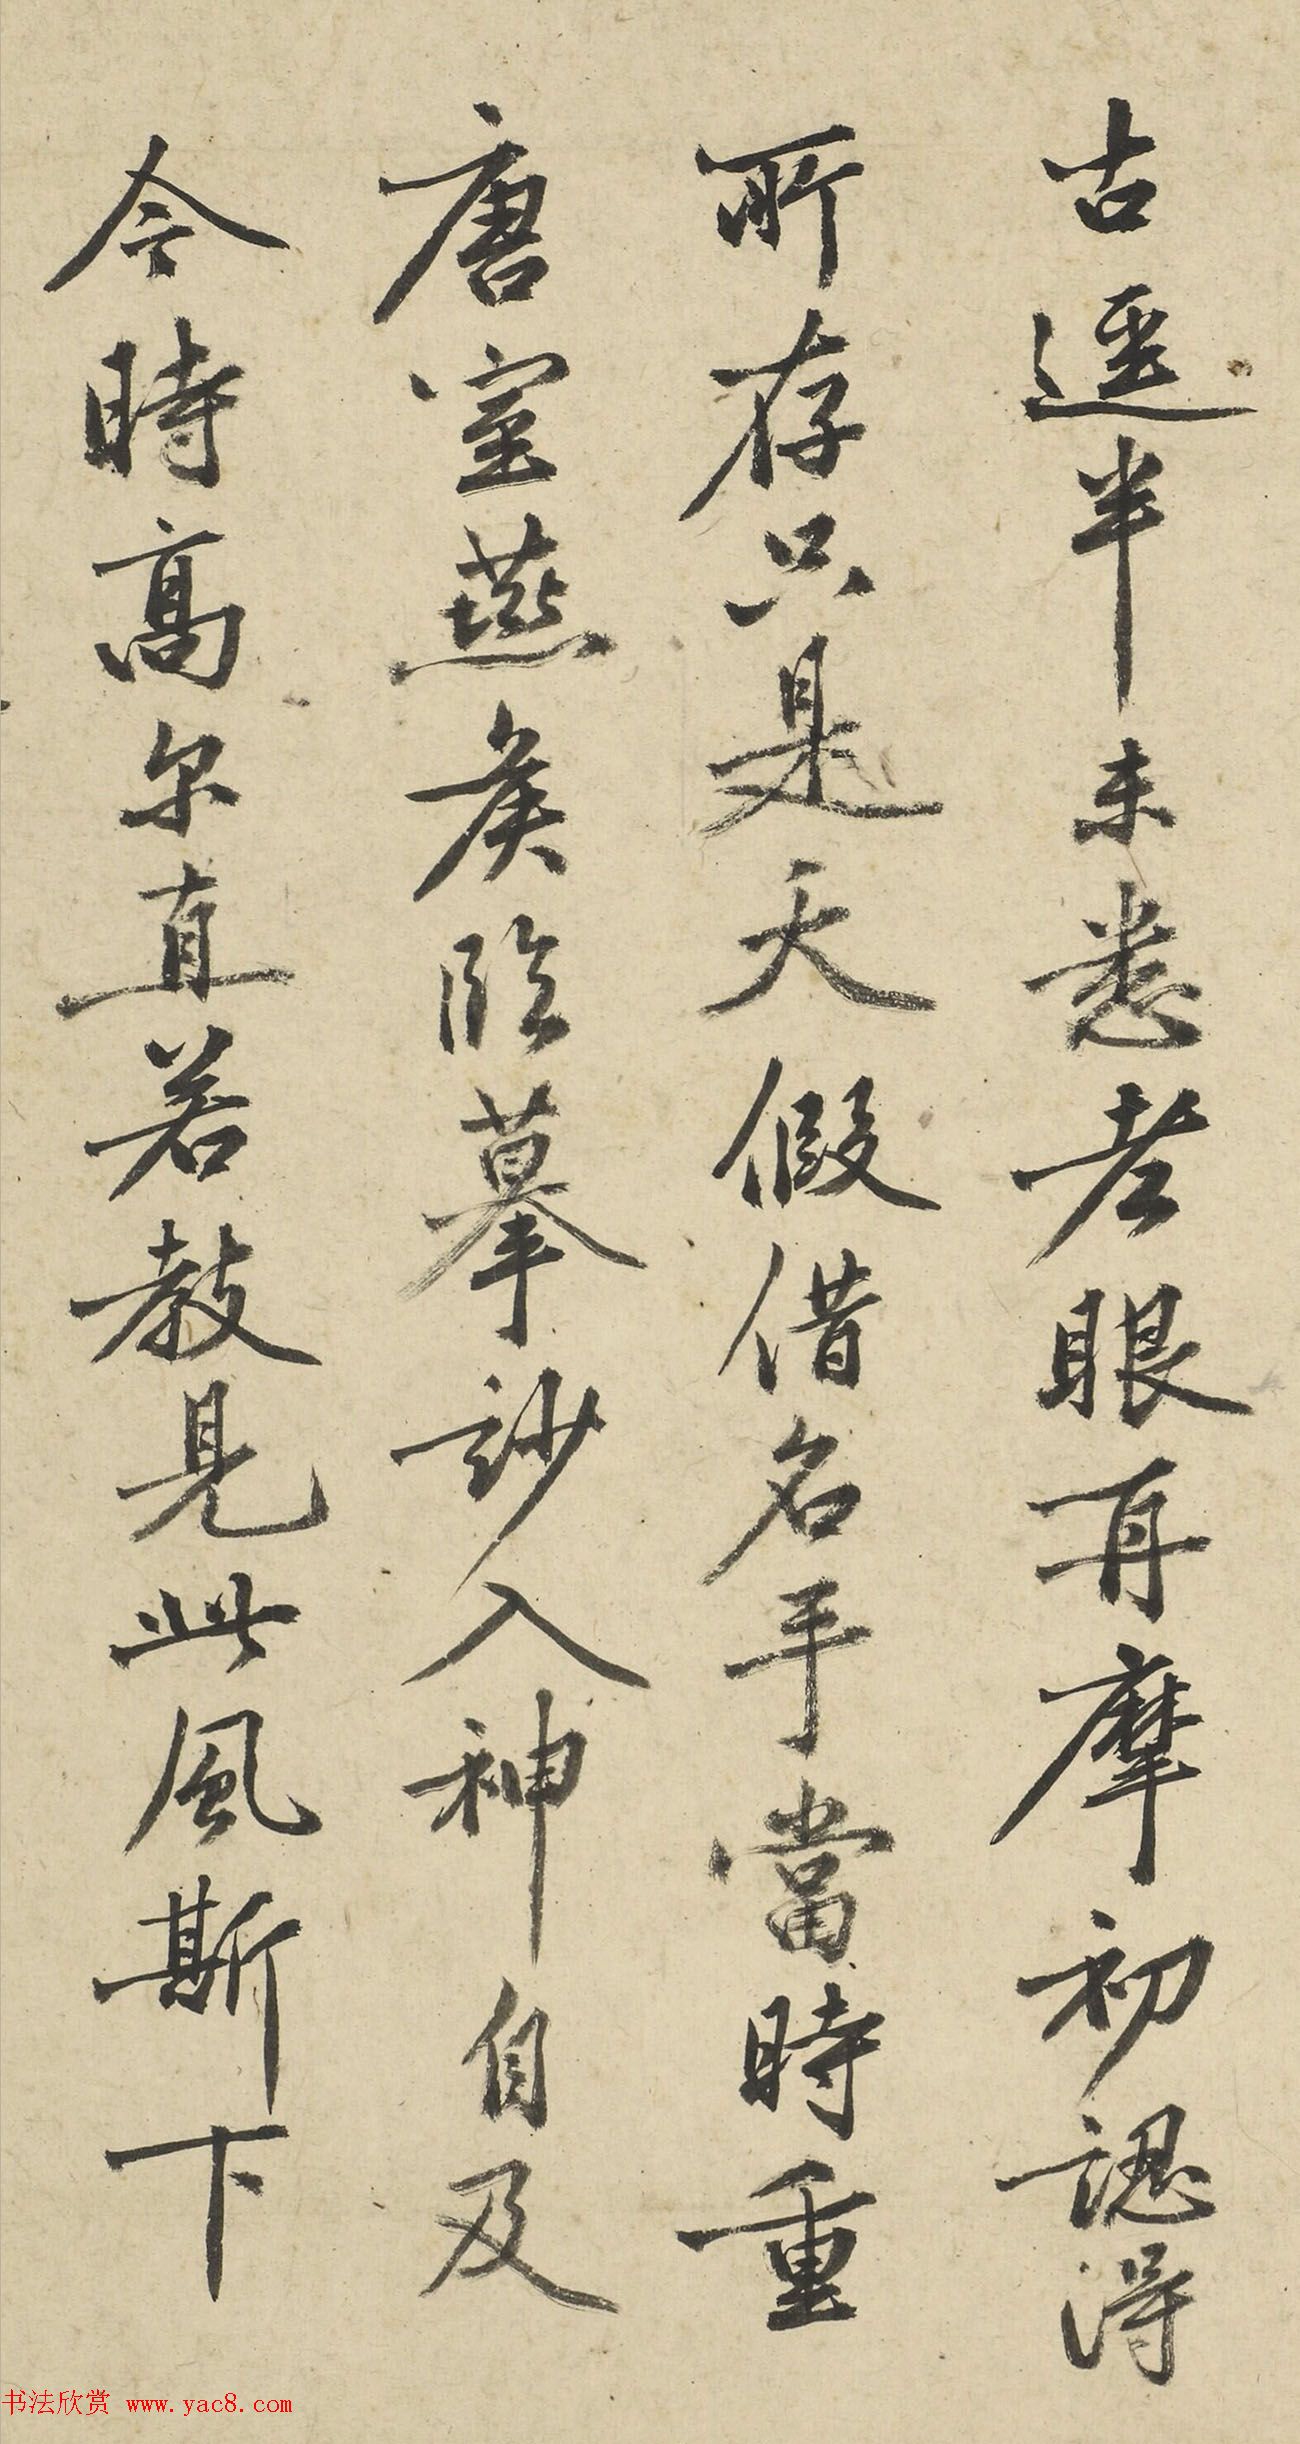 古遥半未悉老眼再摩初認得
所存只是天假借名手當時重
唐室燕矦臨摹訬入神自及
今時高尔直若教見此風斯下
书法欣赏 www.yac8.com